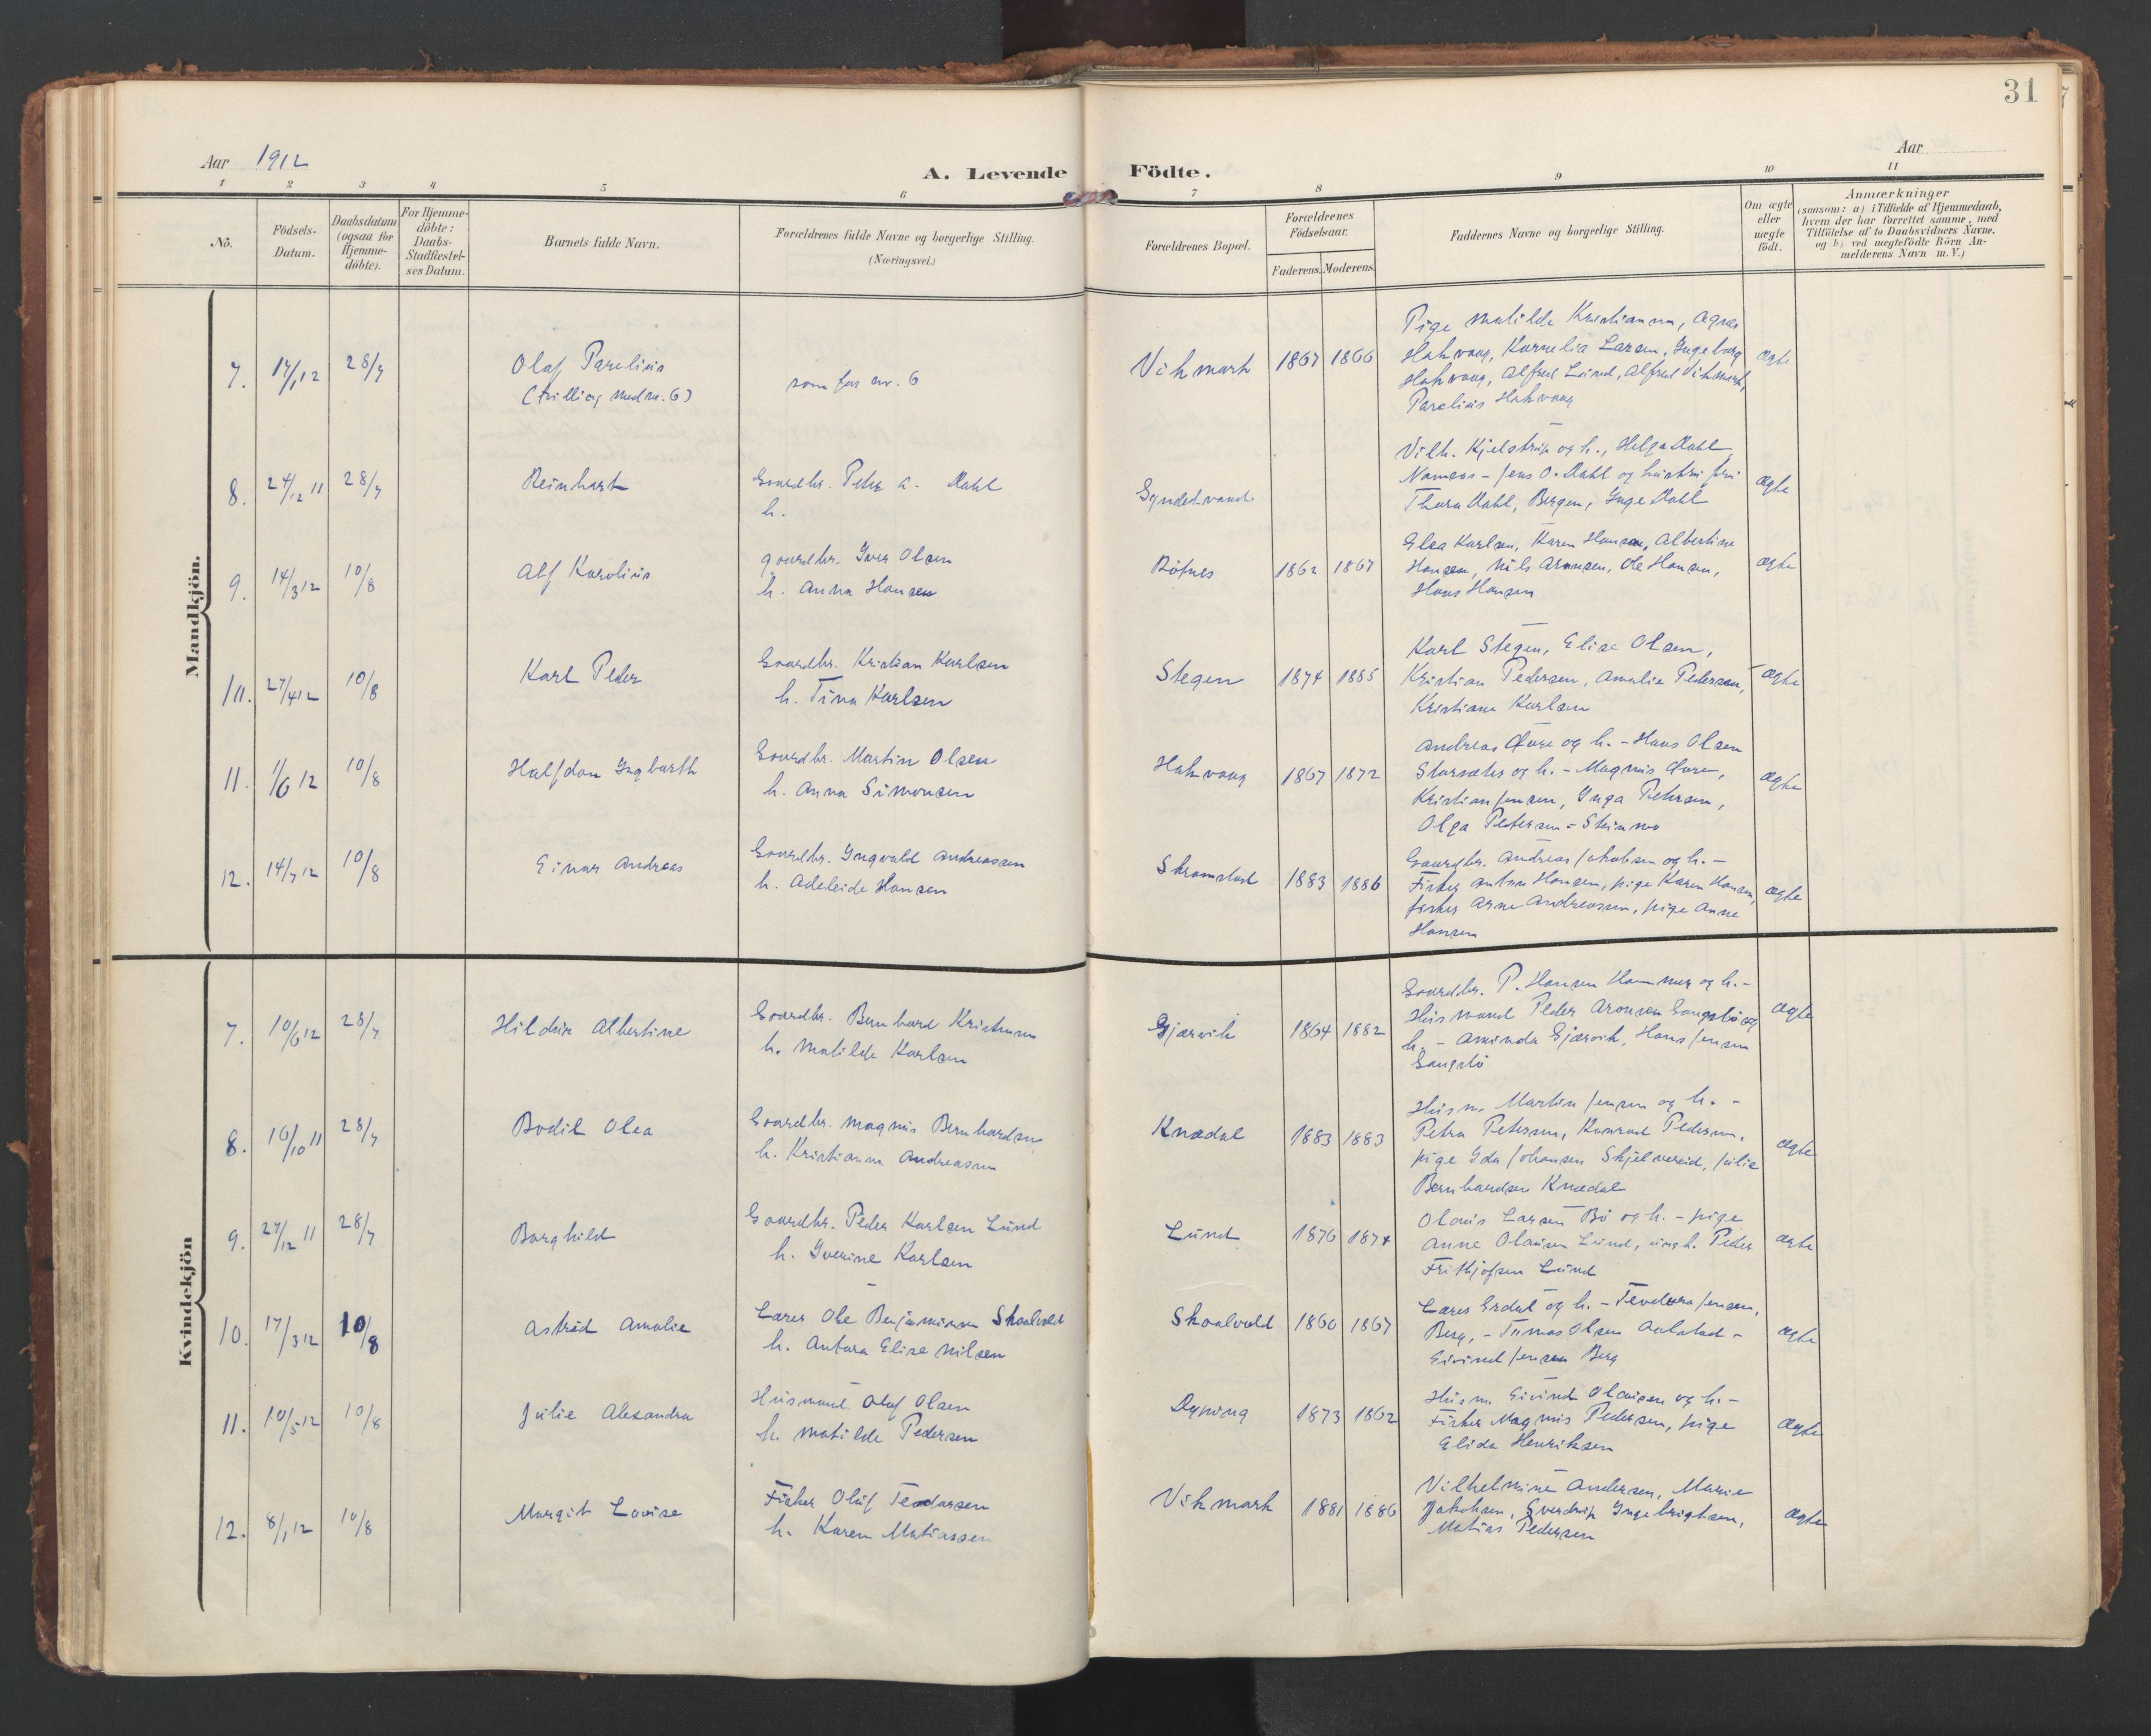 31
Aar 1912
Aar
A. Levende Födte.
1 2 3 4 5 6 7 8 9 10 11
No.
Födsels-Datum.
Daabsdatum (ogsaa for Hjemme-döbte).
For Hjemme-döbte: Daabs-Stadfæstel-ses Datum.
Barnets fulde Navn.
Forældrenes fulde Navne og borgerlige Stilling. (Næringsvei.)
Forældrenes Bopæl.
Forældrenes Födselsaar.
Faderens. Moderens.
Faddernes Navne og borgerlige Stilling.
Om ægte eller uægte födt.
Anmærkninger
(saasom: a) i Tilfælde af Hjemmedaab,
hvem der har forrettet samme, med
Tilföielse af to Daabsvidners Navne.
og b) ved uægtefödte Börn An-
melderens Navn m. V.)
Mandkjön.
7. 14/1 12 28/7 Olaf Parelius som for nr. 6 Vikmark 1867 1866 ægte
(tvilling med nr. 6)
Pige Matilde Kristiansen, Agnes
Hakvaag, Kornelia Larsen, Ingeborg
Hakvaag, Alfred Lund, Alfred Vikmark,
Parelius Hakvaag
8. 24/12 11 28/7 Reinhart Gaardbr. Peter A. Dahl ægte
h.
Vilh. Kjelstrup og h., Helga Dahl
Namsos - Jens O. Dahl og hustru fru
Thora Dahl, Bergen, Inge Dahl
9. 14/3 12 10/8 Alf Karolius gaardbr. Iver Olsen Böfnes 1862 1867 ægte
h. Anna Hansen
Elea Karlsen, Karen Hansen, Albertine
Hansen, Nils Aronsen, Ole Hansen,
Hans Hansen
10. 27/4 12 10/8 Karl Peder Gaardbr. Kristian Karlsen Stegen 1874 1885 ægte
h. Tina Karlsen
Karl Stegen, Elise Olsen,
Kristian Pedersen, Amalie Pedersen,
Kristiane Karlsen
11. 1/6 12 10/8 Halfdan Ingbarth Gaardbr. Martin Olsen Hakvaag 1867 1872 ægte
h. Anna Simonsen
Andreas og h. - Hans Olsen
Storsæter og h. - Magnus
Kristian Jensen, Inga Petersen,
Olga Petersen - Steinmo
12. 14/7 12 10/8 Einar Andreas Gaardbr. Ingvald Andreassen Skramstad 1883 1886 ægte
h. Adeleide Hansen
Gaardbr. Andreas Jakobsen og h. -
Fisker Anton Hansen, pige Karen Hansen,
fisker Arne Andreassen, pige Anne
Hansen
Kvindekjön
7. 10/6 12 28/7 Hildur Albertine Gaardbr. Bernhard Kristensen Gjærvik 1864 1882 ægte
h. Matilde Karlsen
Gaardbr. P. Hansen Hammer og h. -
Husmand Peder Aronsen Gangstö og
h. - Aminda Gjærvik, Hans Jensen
Gangstö
8. 16/10 11 28/7 Bodil Olea Gaardbr. Magnus Bernhardsen Knædal 1883 1883 ægte
h. Kristianna Andreassen
Husm. Martin Jensen og h. -
Petra Petersen, Konrad Pedersen,
pige Ida Johansen Skjelvereid, Julie
Bernhardsen Knædal
9. 27/12 11 28/7 Borghild Gaardbr. Peder Karlsen Lund Lund 1876 1874 ægte
h. Iverine Karlsen
Olaus Larsen Bö og h. - pige
Anne Olausen Lund, ungk. Peder
Frithjofsen Lund
10. 17/3 12 10/8 Astrid Amalie Lærer Ole Benjaminsen Skaalvold Skaalvold 1860 1867 ægte
h. Antora Elise Nilsen
Lars Erdal og h. - Teodora Jensen,
Berg, - Tomas Olsen Aalstad -
Eivind Jensen Berg
11. 10/5 12 10/8 Julie Alexandra Husmand Oluf Olsen Dypving 1873 1862 ægte
h. Matilde Pedersen
Husm. Eivind Olausen og h. -
Fisker Magnus Pedersen, pige
Elida Henriksen
12. 8/1 12 10/8 Margit Lovise Fisker Oluf Teodorsen Vikmark 1881 1886 ægte
h. Karen Matiassen
Vilhelmine Andersen, Marie
Jakobsen, Sverdrup Ingebrigtsen,
Matias Pedersen